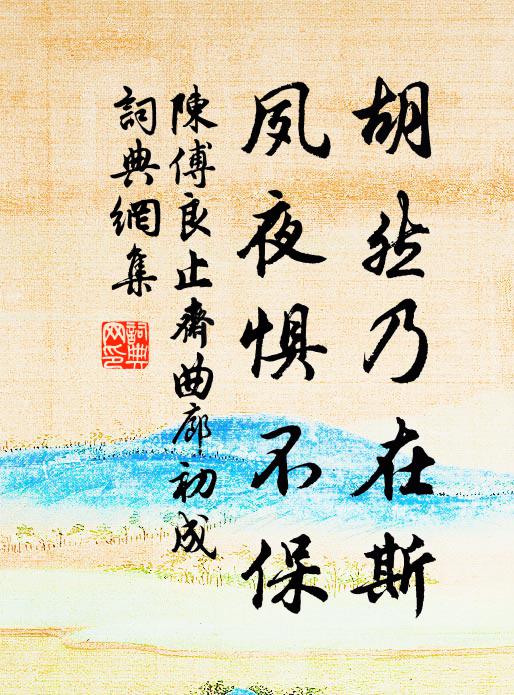 胡然乃在斯
夙夜惧不保
陳傅良止齋曲廊初成
詞典網集
詞典网印